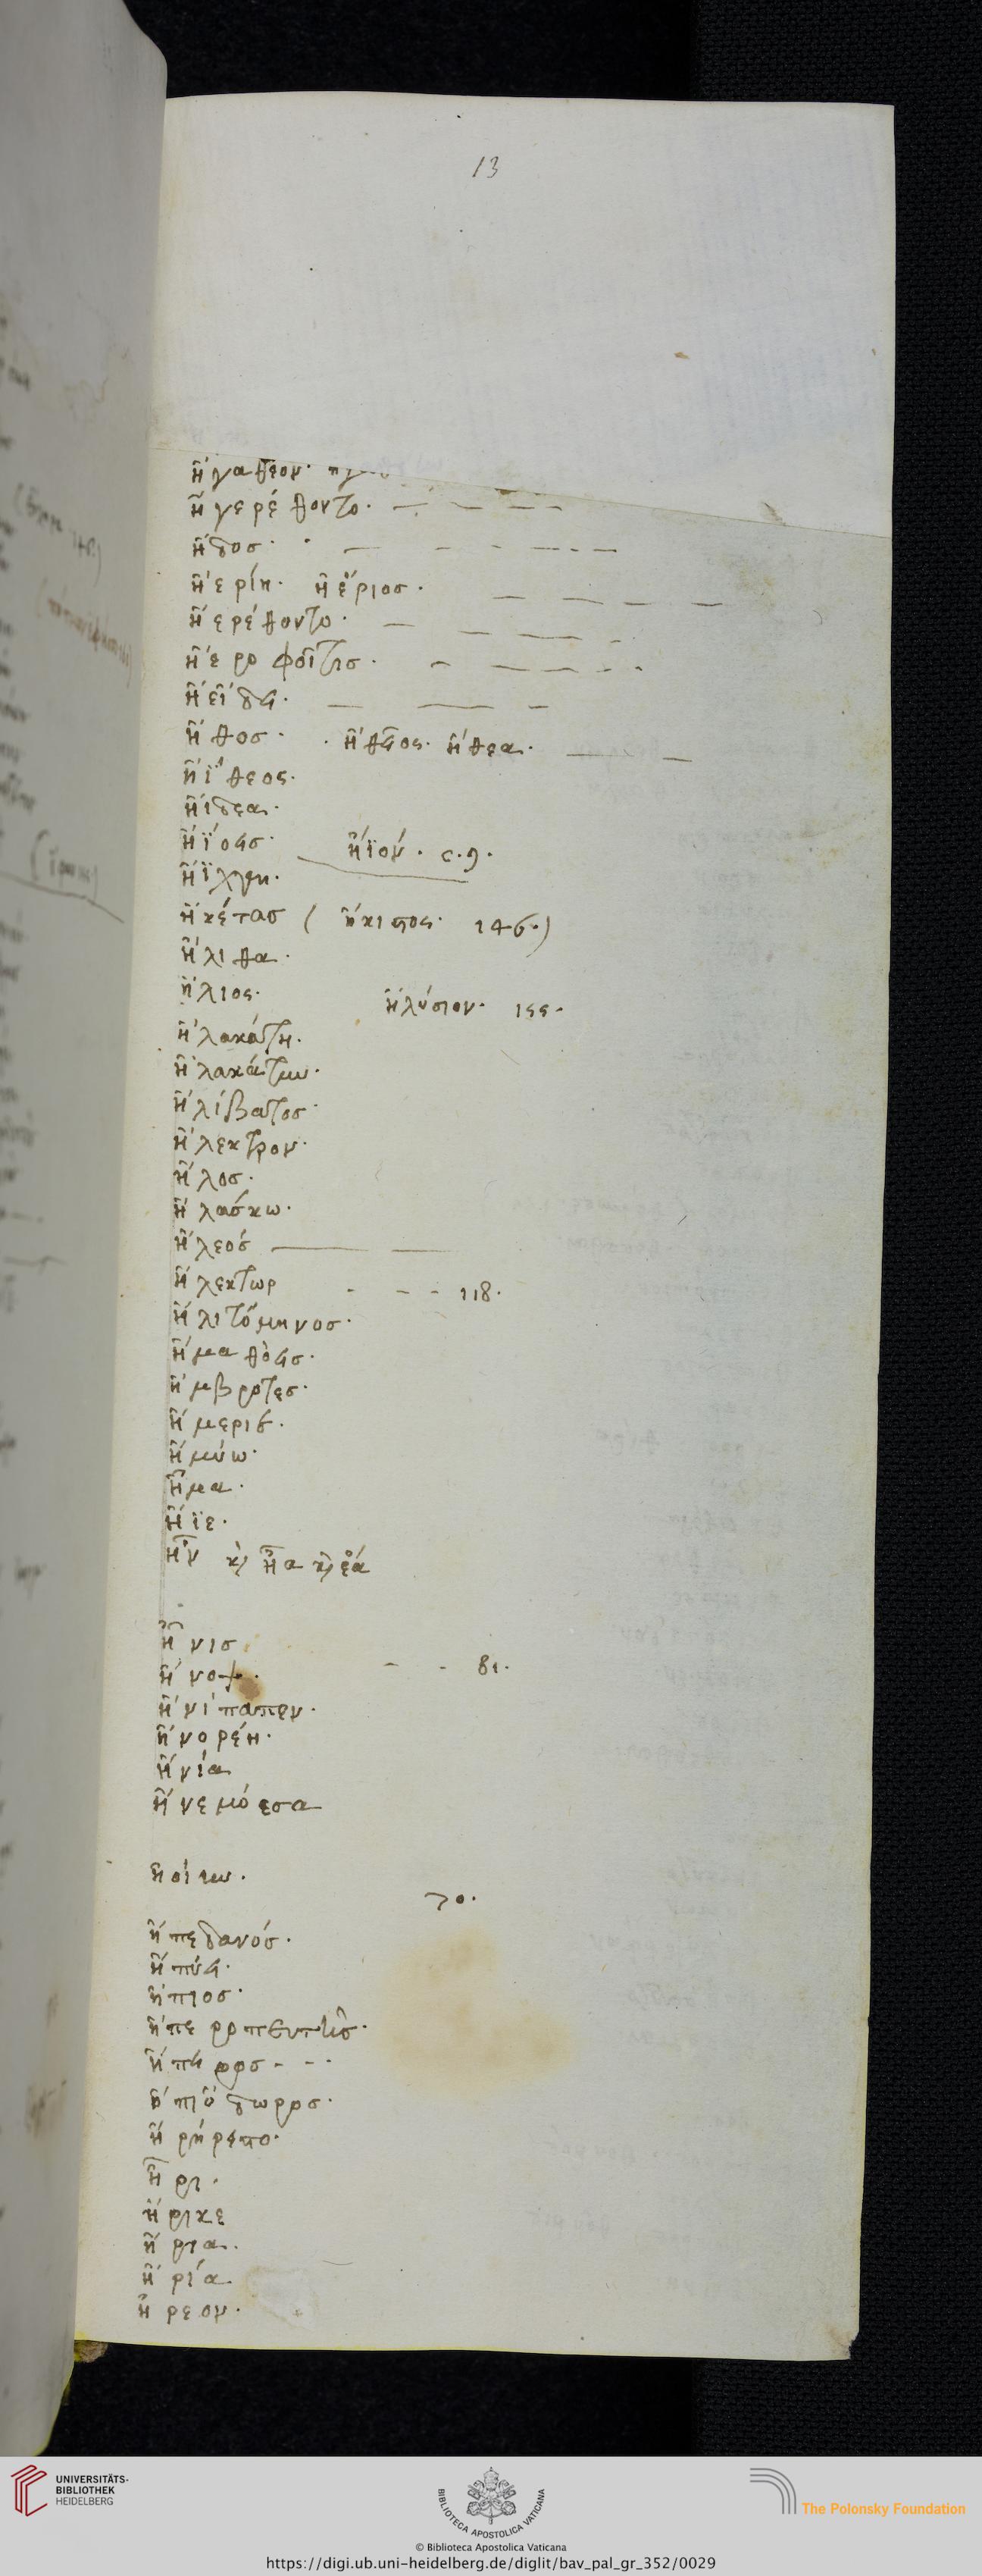 13
ἠγάθεον·
ἠγερέθοντο·
ἦδος·
ἠερίη· ἠέριος·
ἠερέθοντο·
ἠεροφοῖτις·
ἠείδει·
ἦθος· ἠθεῖος· ἤθεα·
ἠΐθεος·
ἠίδεα·
ἠϊόεις· ἠϊόν· c.9·
ἠΐχθη·
ἠκέτας ( ἤκιστος· 146·)
ἤλιθα·
ἥλιος· ἠλύσιον· 155·
ἠλακάτη·
ἠλακάτων·
ἠλίβατος·
ἤλεκτρον·
ἧλος·
ἠλάσκω·
ἠλεός
ἠλέκτωρ 118·
ἠλιτόμηνος·
ἠμαθόεις·
ἤμβροτες·
ἡμερίς·
ἠμύω·
ἧμα·
ἤϊε·
ἦν καὶ ἦα καὶ ἔα
ἦνις
ἤνοψ· 81·
ἠνίπαπεν·
ἠνορέη·
ἡνία
ἠνεμόεσα
ἠοίων·
70·
ἠπεδανός·
ἠπύει·
ἤπιος·
ἠπεροπευτής·
ἤπειρος
ἠπιόδωρος·
ἠρήρειστο·
ἦρι·
ἤρικε
ἦρια·
ἠρία
ᾕρεον·
UNIVERSITÄTS-
BIBLIOTHEK
HEIDELBERG
BIBLIOTECA APOSTOLICA VATICANA
The Polonsky Foundation
© Biblioteca Apostolica Vaticana
https://digi.ub.uni-heidelberg.de/diglit/bav_pal_gr_352/0029